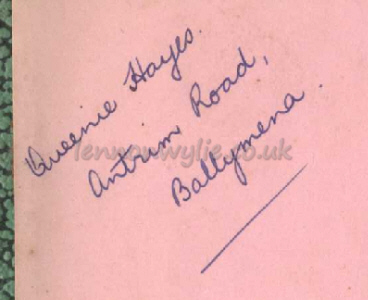 Queenie Hayes.
Antrim Road,
Ballymena.
lennonwylie.co.uk